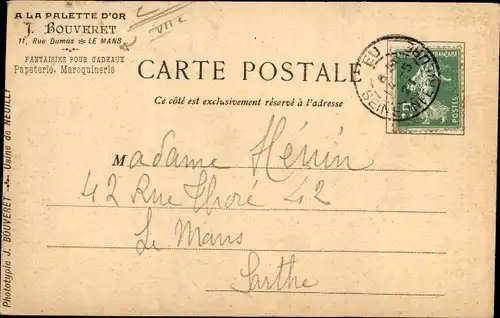 A LA PALETTE D'OR
J. BOUVERET
11, Rue Dumas * LE MANS
FANTAISIES POUR CADEAUX
Papeterie, Maroquinerie
CARTE POSTALE
Ce côté est exclusivement réservé à l'adresse
EU
SEINE-INFRE
5
POSTES
Madame Hénin
42 Rue Thoré 42
Le Mans
Sarthe
Phototypie J. BOUVERET Usine de NEUILLY